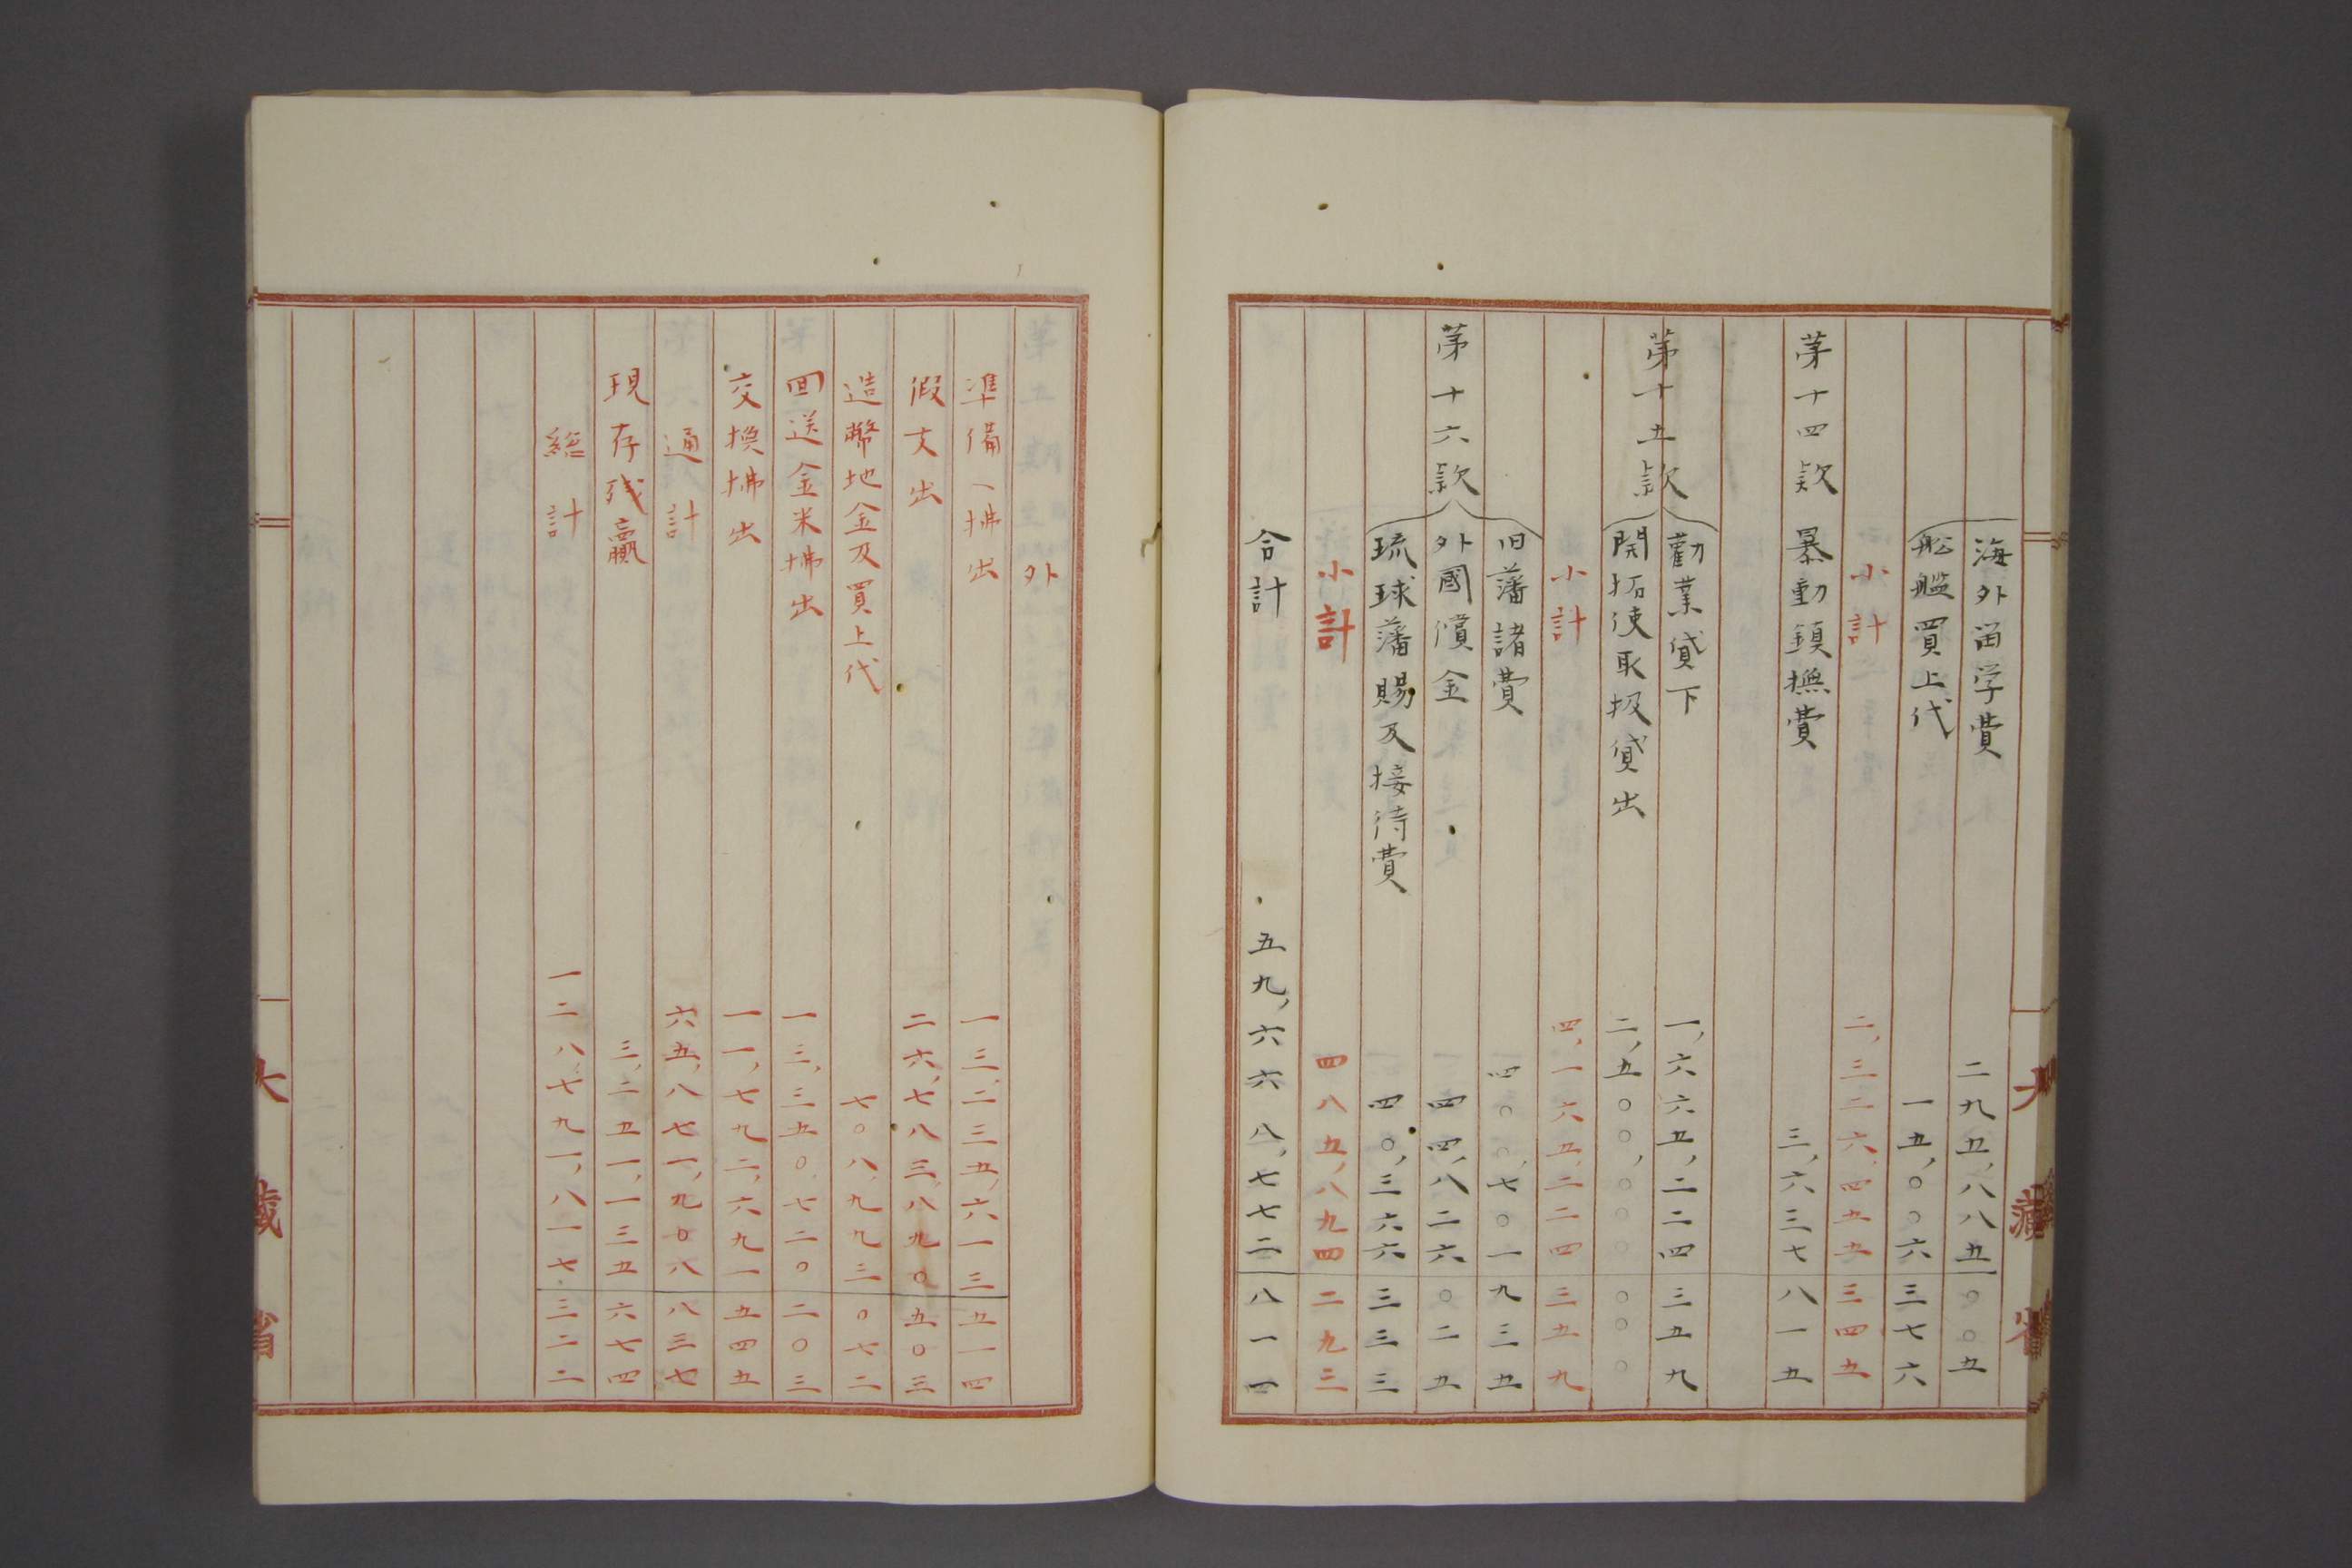 海外畄学費 二九五,八八五 〇〇五
船艦買上代 一五,〇〇六 三七六
小計 二,三二六,四五五 三四五
第十四款 暴動鎮撫費 三,六三七 八一五
第十五款
勸業貸下 一,六六五,二二四 三五九
開拓使取扱貸出 二,五〇〇,〇〇〇 〇〇〇
小計 四,一六五,二二四 三五九
第十六款
旧藩諸費 四〇〇,七〇一 九三五
外國償金 四四,八二六 〇二五
琉球藩賜及接待費 四〇,三六六 三三三
小計 四八五,八九四 二九三
合計 五九,六六八,七七二 八一一
大藏省
外
準備ヘ拂出 一三,二三五,六一三 五一四
假支出 二六,七八三,八九〇 五〇三
造幣地金及買上代 七〇八,九九三 〇七二
回送金米拂出 一三,三五〇,七二〇 二〇三
交換拂出 一一,七九二,六九一 五四五
通計 六五,八七一,九〇八 八三七
現存残贏 三,二五一,一三五 六七四
総計 一二八,七九一,八一七 三二二
大藏省